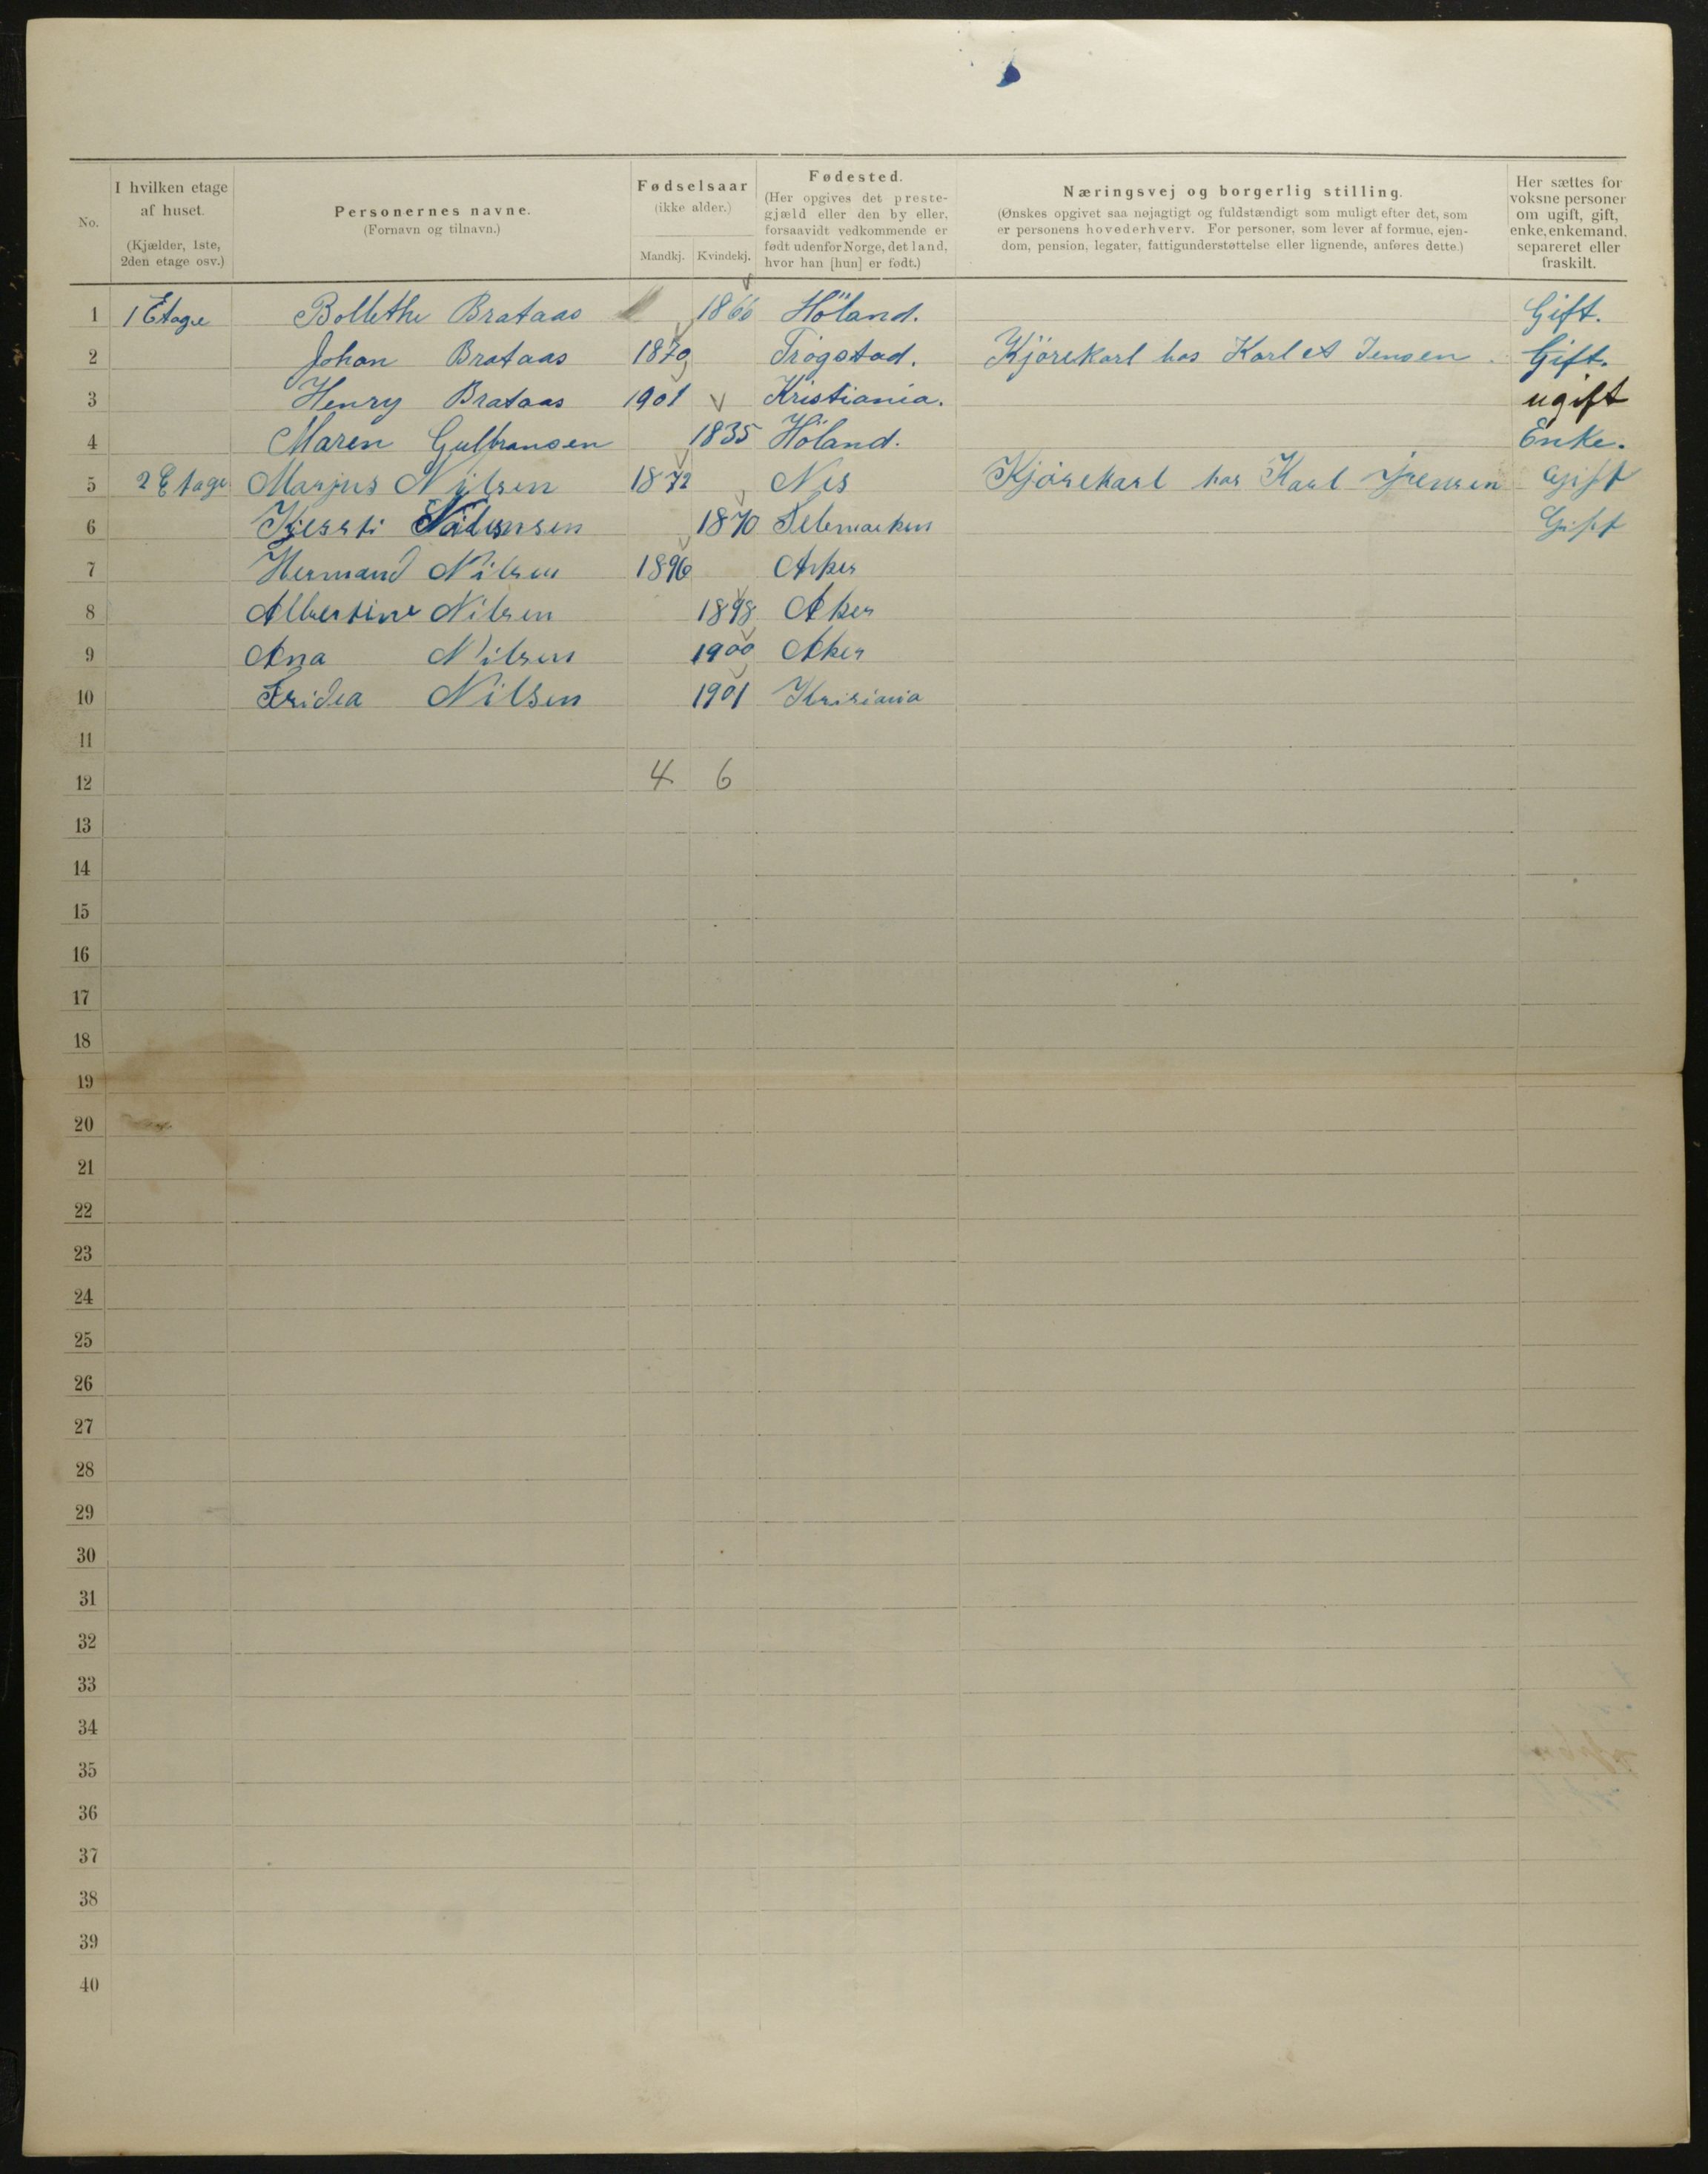 No.
I hvilken etage
af huset.
(Kjælder, 1ste,
2den etage osv.)
Personernes navne.
(Fornavn og tilnavn.)
Fødselsaar
(ikke alder.)
Mandkj. Kvindekj.
Fødested.
(Her opgives det preste-
gjæld eller den by eller,
forsaavidt vedkommende er
født udenfor Norge, det land,
hvor han [hun] er født.)
Næringsvej og borgerlig stilling.
(Ønskes opgivet saa nøjagtigt og fuldstændigt som muligt efter det, som
er personens hovederhverv. For personer, som lever af formue, ejen-
dom, pension, legater, fattigunderstøttelse eller lignende, anføres dette.)
Her sættes for
voksne personer
om ugift, gift,
enke, enkemand,
separeret eller
fraskilt.
1 1 Etage Bollethe Brataas 1866 Höland. Gift.
2 Johan Brataas 1879 Trögstad. Kjörekarl hos Karl et Jensen. Gift.
3 Henry Brataas 1901 Kristiania. ugift
4 Maren Gulbransen 1835 Höland. Enke.
5 2 Etage Marjus Nilsen 1872 Nes Kjörekarl hos Karl Jensen Gift
6 Kjersti 1870 Telemarken Gift
7 Hermand Nilsen 1896 Aker
8 Albertine Nilsen 1898 Aker
9 Ana Nilsen 1900 Aker
10 Fridea Nilsen 1901 Krisiania
11
12 4 6
13
14
15
16
17
18
19
20
21
22
23
24
25
26
27
28
29
30
31
32
33
34
35
36
37
38
39
40